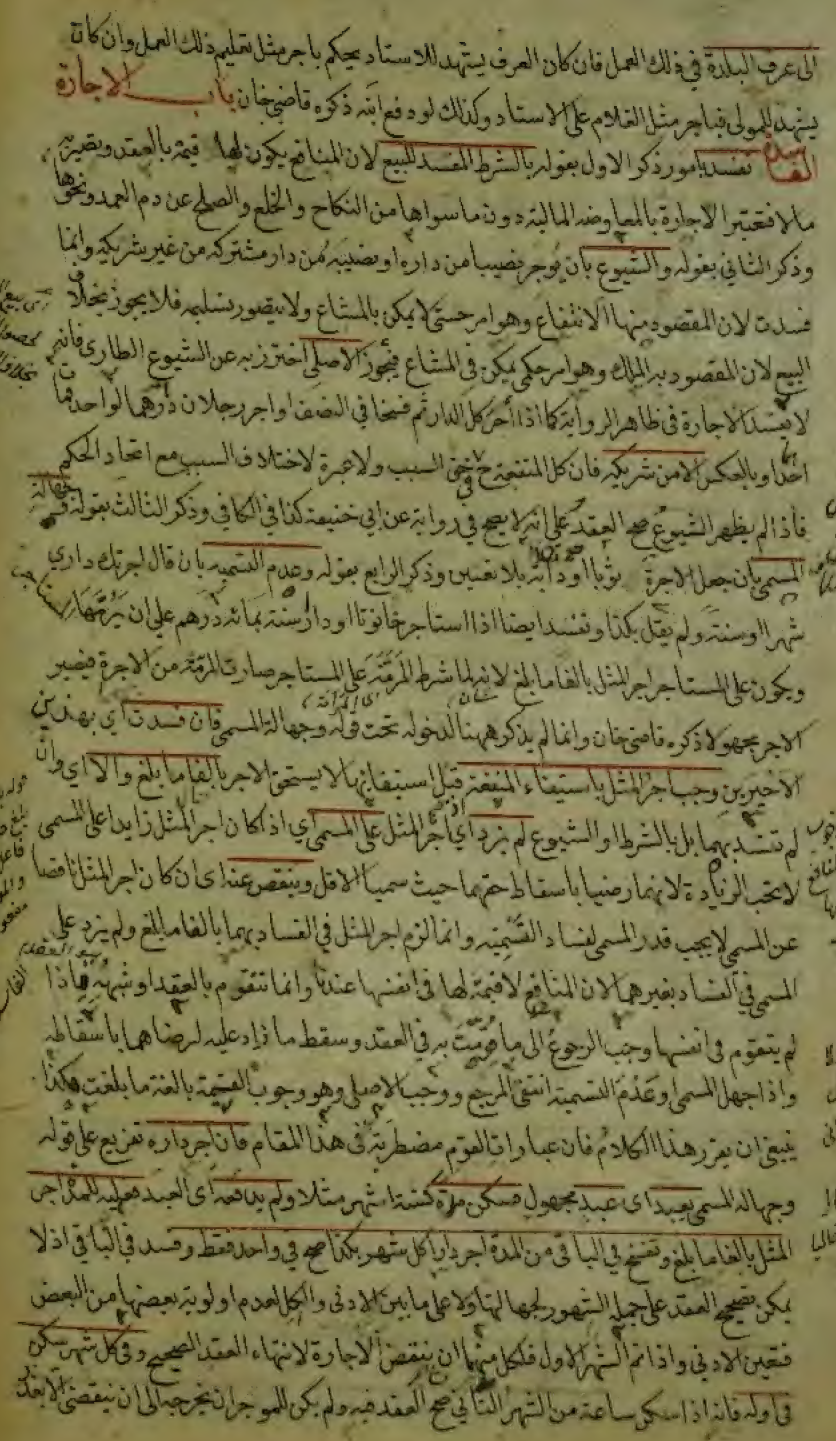 الى عرف البلدة في ذلك العمل فان كان العرف يشهد للاستاد يحكم باجر مثل تعليم ذلك العمل وان كان
يشهد للمولى فباجر مثل الغلام على الاستاد وكذلك لو دفع ابنه ذكره قاضي خان باب الاجارة
الفاسدة تفسد بامور ذكر الاول بقوله بالشرط المفسد للبيع لان المنافع يكون لها قيمة بالعقد ويصير به
مالا فتعتبر الاجارة بالمعاوضة المالية دون ما سواها من النكاح والخلع والصلح عن دم العمد ونحوها
وذكر الثاني بقوله والشيوع بان يوجر نصيبا من داره او نصيبه من دار مشتركة من غير شريكه وانما
فسدت لان المقصود منها الانتفاع وهو امر حسي لا يمكن بالمشاع ولا يتصور تسليمه فلا يجوز بخلاف
البيع لان المقصود به الملك وهو امر حكمي يمكن في المشاع فيجوز الاصلي احترز به عن الشيوع الطاري فانه
لا يفسد الاجارة في ظاهر الرواية كما اذا آجر كل الدار ثم فسخا في النصف او اجر رجلان دارهما لواحد فمات
احدهما او بالعكس الا من شريكه فان كل المنفعة ح في السبب ولا عبرة لاختلاف السبب مع اتحاد الحكم
فاذا لم يظهر الشيوع صح العقد على انه لا يصح في رواية عن ابي حنيفة كذا في الكافي وذكر الثالث بقوله وجهالة
المسمى بان جعل الاجرة ثوبا او دابة بلا تعيين وذكر الرابع بقوله وعدم التسمية بان قال اجرتك داري
شهرا او سنة ولم يقل بكذا وتفسد ايضا اذا استاجر حانوتا او دارا سنة بمائة درهم على ان يرمها المستاجر
ويكون على المستاجر اجر المثل بالغا ما بلغ لانه لما شرط المرمة على المستاجر صارت المرمة من الاجرة فيصير
الاجر مجهولا ذكره قاضي خان وانما لم يذكر ههنا لدخوله تحت قوله وجهالة المسمى فان فسدت اي بهذين
الاخيرين وجب اجر المثل باستيفاء المنفعة قبل استيفائها لا يستحق الاجر بالغا ما بلغ والا اي وان
لم تفسد بهما بل بالشرط او الشيوع لم يزد اي اجر المثل على المسمى اي اذا كان اجر المثل زايدا على المسمى
لا يجب الزيادة لانهما رضيا باسقاط حقهما حيث سميا الاقل وينقص عنه اي ان كان اجر المثل ناقصا
عن المسمى لا يجب قدر المسمى لفساد التسمية وانما لزم اجر المثل في الفساد بهما بالغا ما بلغ ولم يزد على
المسمى في الفساد بغيرهما لان المنافع لا قيمة لها في انفسها عندنا وانما تتقوم بالعقد او شبهه فاذا
لم يتقوم في انفسها وجب الرجوع الى ما قومت به في العقد وسقط ما زاد عليه لرضاهما باسقاطه
واذا جهل المسمى او عدم التسمية انتفى المرجع ووجب الاصلي وهو وجوب القيمة بالغة ما بلغت هكذا
ينبغي ان يقرر هذا الكلام فان عبارات القوم مضطربة في هذا المقام فان اجر داره تفريع على قوله
وجهالة المسمى بعبد اي عبد مجهول فسكن مدة كستة اشهر مثلا ولم يدفعه اي العبد فعليه للمدة اجر
المثل بالغا ما بلغ وتفسخ في الباقي من المدة اجر دارا كل شهر بكذا صح في واحد فقط وفسد في الباقي اذ لا
يمكن تصحيح العقد على جملة الشهور لجهالتها ولا على ما بين الادنى والكل لعدم اولوية بعضها من البعض
فتعين الادنى واذا تم الشهر الاول فلكل منهما ان ينقض الاجارة لانتهاء العقد الصحيح وفي كل شهر سكن
في اوله فانه اذا سكن ساعة من الشهر الثاني صح العقد فيه ولم يكن للموجر ان يخرجه الى ان ينقضي الا بعذر